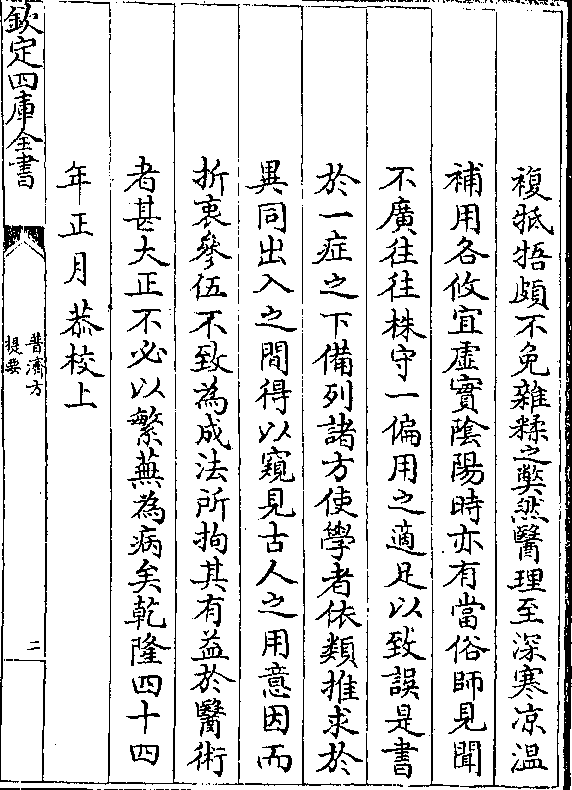 複牴牾頗不免雜糅之獘然醫理至深寒凉温
補用各攸宜虛實隂陽時亦有當俗師見聞
不廣往往株守一偏用之適足以致誤是書
於一症之下備列諸方使學者依類推求於
異同出入之間得以窺見古人之用意因而
折衷參伍不致為成法所拘其有益於醫術
者甚大正不必以繁蕪為病矣乾隆四十四
年正月恭校上
欽定四庫全書
普濟方
提要
二